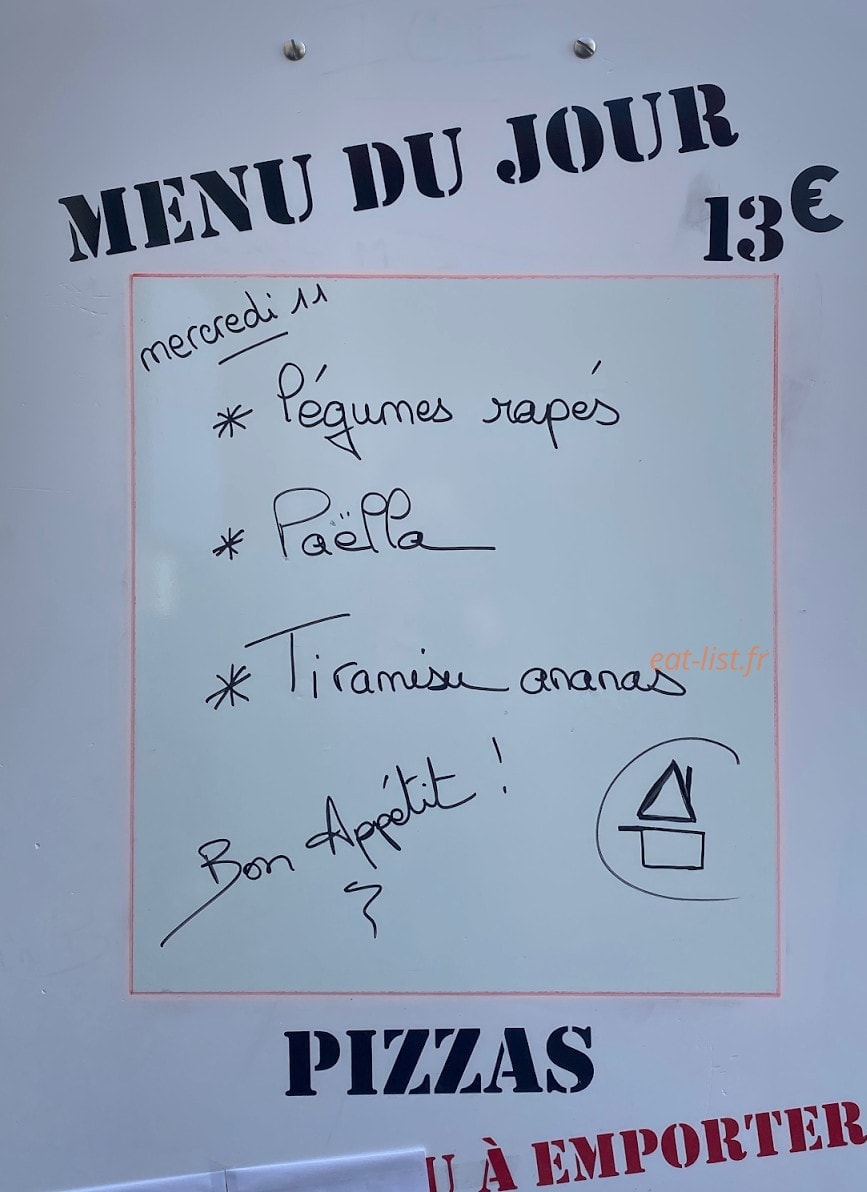 MENU DU JOUR
13€
mercredi 11
* Légumes rapés
* Paëlla
* Tiramisu ananas
eat-list.fr
Bon Appétit !
PIZZAS
U À EMPORTER